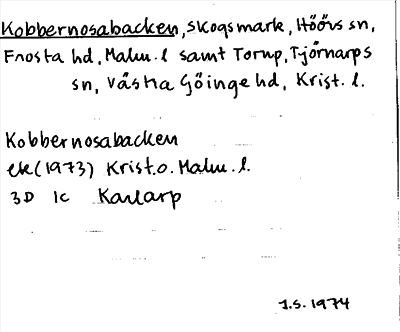 Kobbernosabacken, Skogsmark, Höörs sn,
Frosta hd, Malm. l samt Torup, Tjörnarps
sn, Västra Göinge hd, Krist. l.
Kobbernosabacken
ek (1973) Krist. o. Malm. l.
3D 1c Karlarp
J.S. 1974